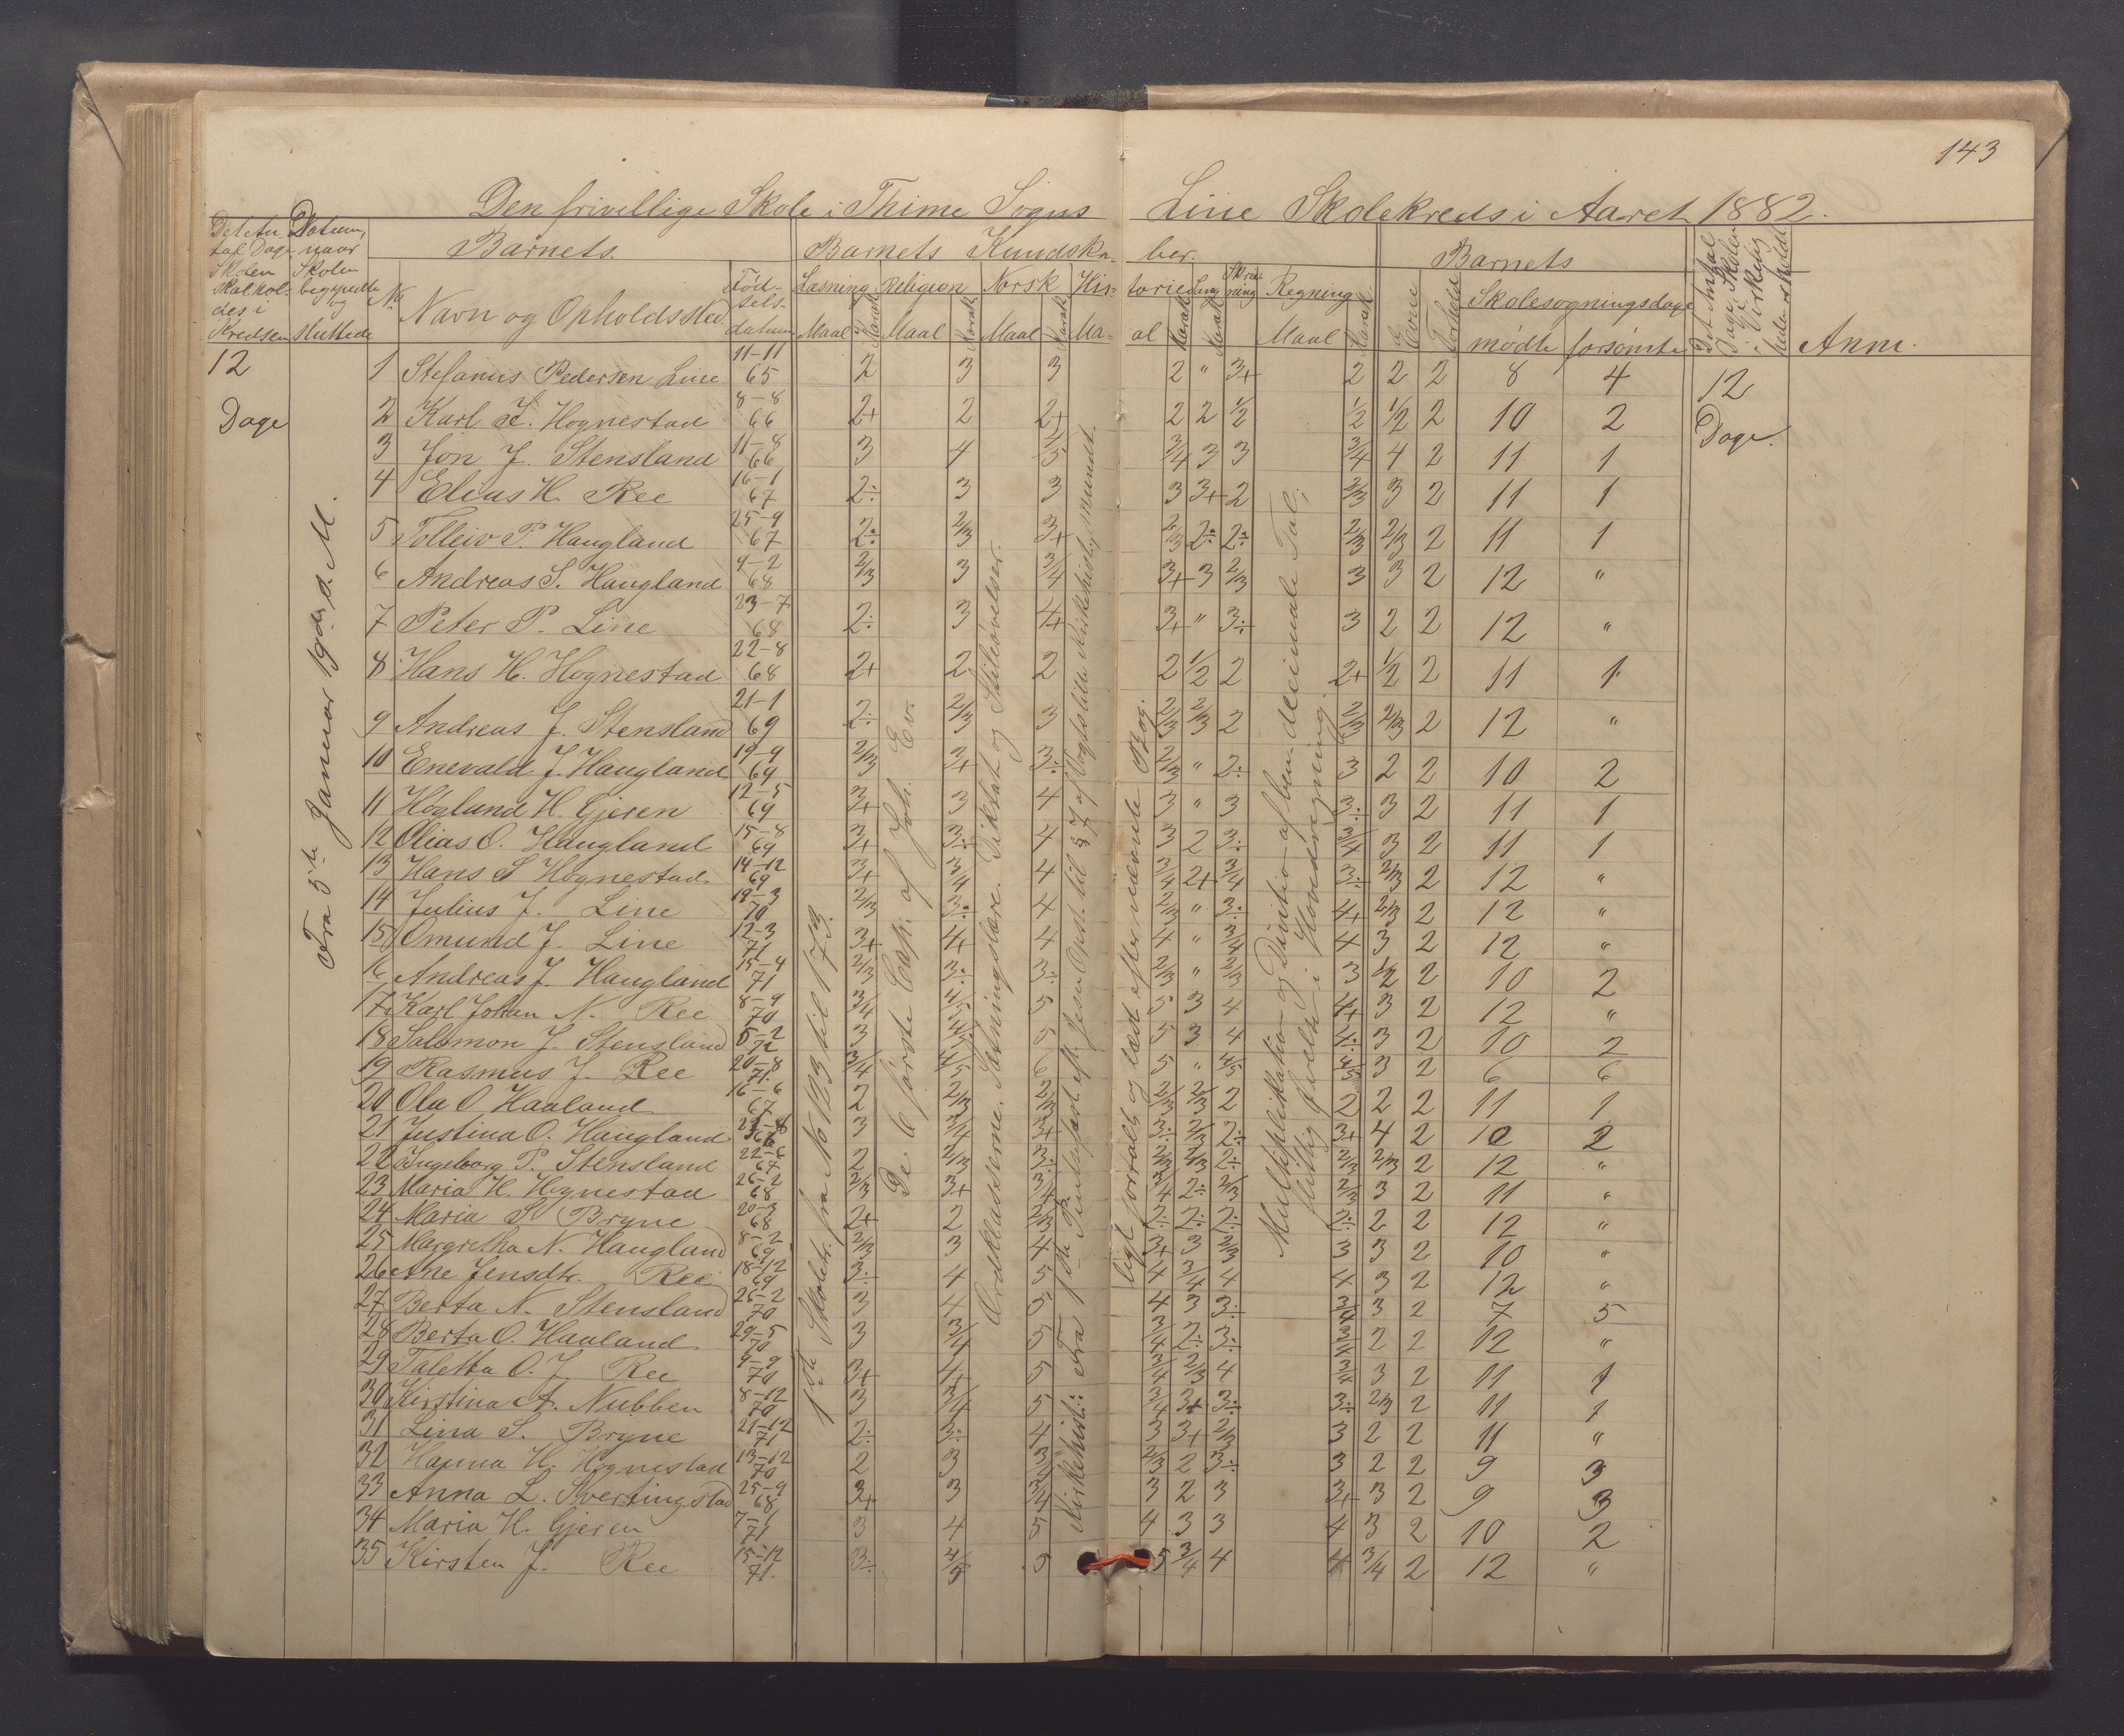 143
Den frivillige Skole i Thime Sogns Line Skolekreds i Aaret 1882.
Det An- tal Dage Skolen skal hol- des i Kredsen
Datum, naar Skolen begyndte og sluttede
Barnets
Barnets Kundska- ber.
Barnets
Det Antal Dage Skolen i Virkelig- heden er holdt
Anm.
No Navn og Opholdssted Fød- sels- datum
Læsning Religion Norsk His- torie Sang Skriv- ning Regning Evne Forhold Skolesøgningsdage
Maal Karakt. Maal Karakt. Maal Karakt. Ma- al Karakt. Karakt. Maal Karakt. mødte forsømte
12 Dage
Fra 5te Januar 19de s. M.
12 Dage.
1 Stefanus Pedersen Line 11-11 65 2 3 3 2 " 3+ 2 2 2 8 4
2 Karl H. Hognestad 8-8 66 2+ 2 2+ 2 2 1/2 1/2 1/2 2 10 2
3 Jon J. Stensland 11-8 66 3 4 4/5 3/4 3 3 3/4 4 2 11 1
4 Elias H. Ree 16-1 67 2÷ 3 3 3 3+ 2 2/3 3 2 11 1
5 Tolleiv P. Haugland 25-9 67 2÷ 2/3 3+ 2/3 2÷ 2÷ 2/3 2/3 2 11 1
6 Andreas S. Haugland 9-2 68 2/3 3 3/4 3+ 3 2/3 3 3 2 12 "
7 Peter P. Line 23-7 68 2÷ 3 4+ 3+ " 3÷ 3 2 2 12 "
8 Hans H. Hognestad 22-8 68 2+ 2 2 2 1/2 2 2+ 1/2 2 11 1
9 Andreas J. Stensland 21-1 69 2÷ 2/3 3 2/3 2/3 2 2/3 2/3 2 12 "
10 Enevald J. Haugland 19-9 69 2/3 3+ 3÷ 2/3 " 2÷ 3 2 2 10 2
11 Høgland H. Gjeren 12-5 69 3+ 3 4 3 " 3 3÷ 3 2 11 1
12 Olias O. Haugland 15-8 69 3+ 3÷ 4 3 2 3÷ 3/4 3 2 11 1
13 Hans S Hognestad 14-12 69 3+ 3/4 4 3/4 2+ 3/4 3÷ 2/3 2 12 "
14 Julius J. Line 19-3 70 2/3 3÷ 4 2/3 " 3÷ 4+ 2/3 2 12 "
15 Omund J. Line 12-3 71 3+ 4+ 4 4 " 3/4 4 3 2 12 "
16 Andreas J. Haugland 15-4 71 2/3 3÷ 3÷ 2/3 " 2/3 3 1/2 2 10 2
17 Karl Johan N. Ree 8-9 70 3/4 4/5 5 5 3 4 4+ 3 2 12 "
18 Salomon J. Stensland 5-2 72 3 4/5 5 5 3 4 4÷ 3 2 10 2
19 Rasmus J. Ree 20-8 71. 3/4 4/5 6 5 " 4/5 4/5 3 2 6 6
20 Ola O Haaland 16-6 67 2 2/3 2/3 2/3 2/3 2 2 2 2 11 1
21 Justina O. Haugland 3 3/4 3+ 3÷ 2/3 2÷ 3+ 4 2 10 2
22 Ingeborg P. Stensland 22-6 67 2 2/3 3÷ 2/3 2/3 2÷ 2/3 2/3 2 12 "
23 Maria H. Hognestad 26-2 68 2/3 3+ 3/4 3/4 2÷ 2/3 2/3 3 2 11 "
24 Maria S. Bryne 20-3 68 2+ 2 2/3 2÷ 2÷ 2÷ 2÷ 2 2 12 "
25 Margretha N. Haugland 8-2 69 2/3 3 4 3+ 3 2/3 3 3 2 10 "
26 Ane Jensdtr. Ree 18-12 69 3÷ 4 5 4 3/4 4 4 3 2 12 "
27 Berta N. Stensland 26-2 70 3 4 5 4 3 3÷ 3/4 3 2 7 5
28 Berta O. Haaland 29-5 70 3 3/4 5 3/4 2÷ 3÷ 3/4 2 2 12 "
29 Taletta O. J. Ree 9-9 70 3+ 4+ 5 3/4 2/3 4 3/4 3 2 11 1
30 Kirstina A. Nubben 8-12 70 3 3/4 5 3/4 3+ 3÷ 3÷ 2/3 2 11 1
31 Lina S. Bryne 21-12 71 2÷ 3÷ 4 3 3+ 2/3 3 2 2 11 "
32 Hanna H. Hognestad 13-12 70 2 3 3/4 2/3 2 3÷ 3 2 2 9 3
33 Anna L. Svertingstad 25-9 68 3+ 3 3/4 3 2 3 3+ 3 2 9 3
34 Maria H. Gjeren 7-1 71 3 4 5 4 3 3 4 3 2 10 2
35 Kirsten J. Ree 15-12 71. 3÷ 4/5 5 5 3/4 4 4 3/4 2 12 "
1ste Skoletr. fra No 123 til 173.
De 6 første Cap. af Joh. Ev.
Ordklasserne. Sætningslære. Diktat og Stiløvelser.
Kirkehist.: Fra 1ste Pindsefest eft. Jesu Opst. til § 7 af Vogts lille Kirkehistorie, mundt-
ligt fortalt og læst efter nævnte Bog.
Multiplikation og Division af ben. decimale Tal;
flittig øvelse i Hovedregning.